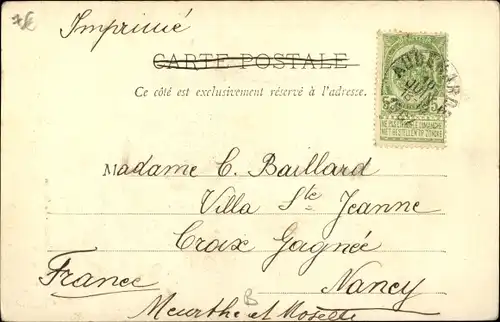 Imprimé
CARTE POSTALE
Ce côté est exclusivement réservé à l'adresse.
NE PAS LIVRER LE DIMANCHE
NIET BESTELLEN OP ZONDAG
Madame C. Baillard
Villa Ste Jeanne
Croix Gagnée
France Nancy
B
Meurthe et Moselle